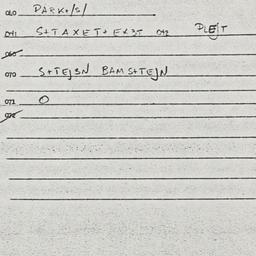 010 PARK+/S/
041 S+TAXET+ EKST 042 PLEJT
060
070 S+TEJSN BAMS+TEJN
071 O
072